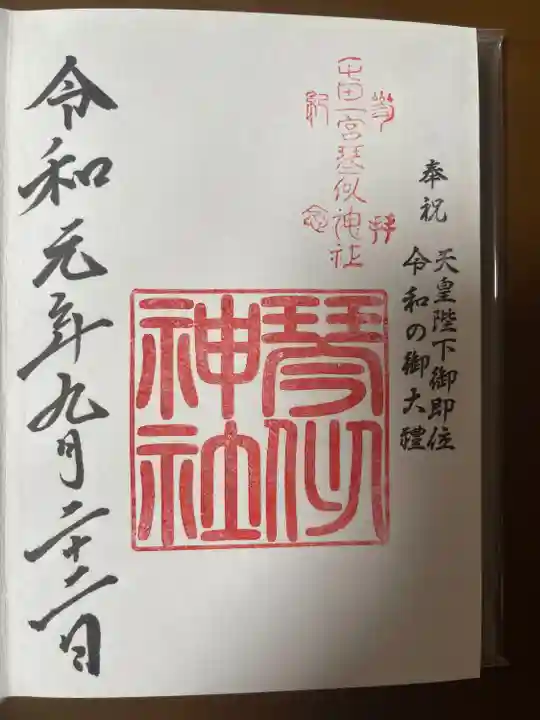 奉祝
天皇陛下御即位
令和の御大禮
屯田一宮琴似神社
参拝
記念
琴似
神社
令和元年九月二十二日